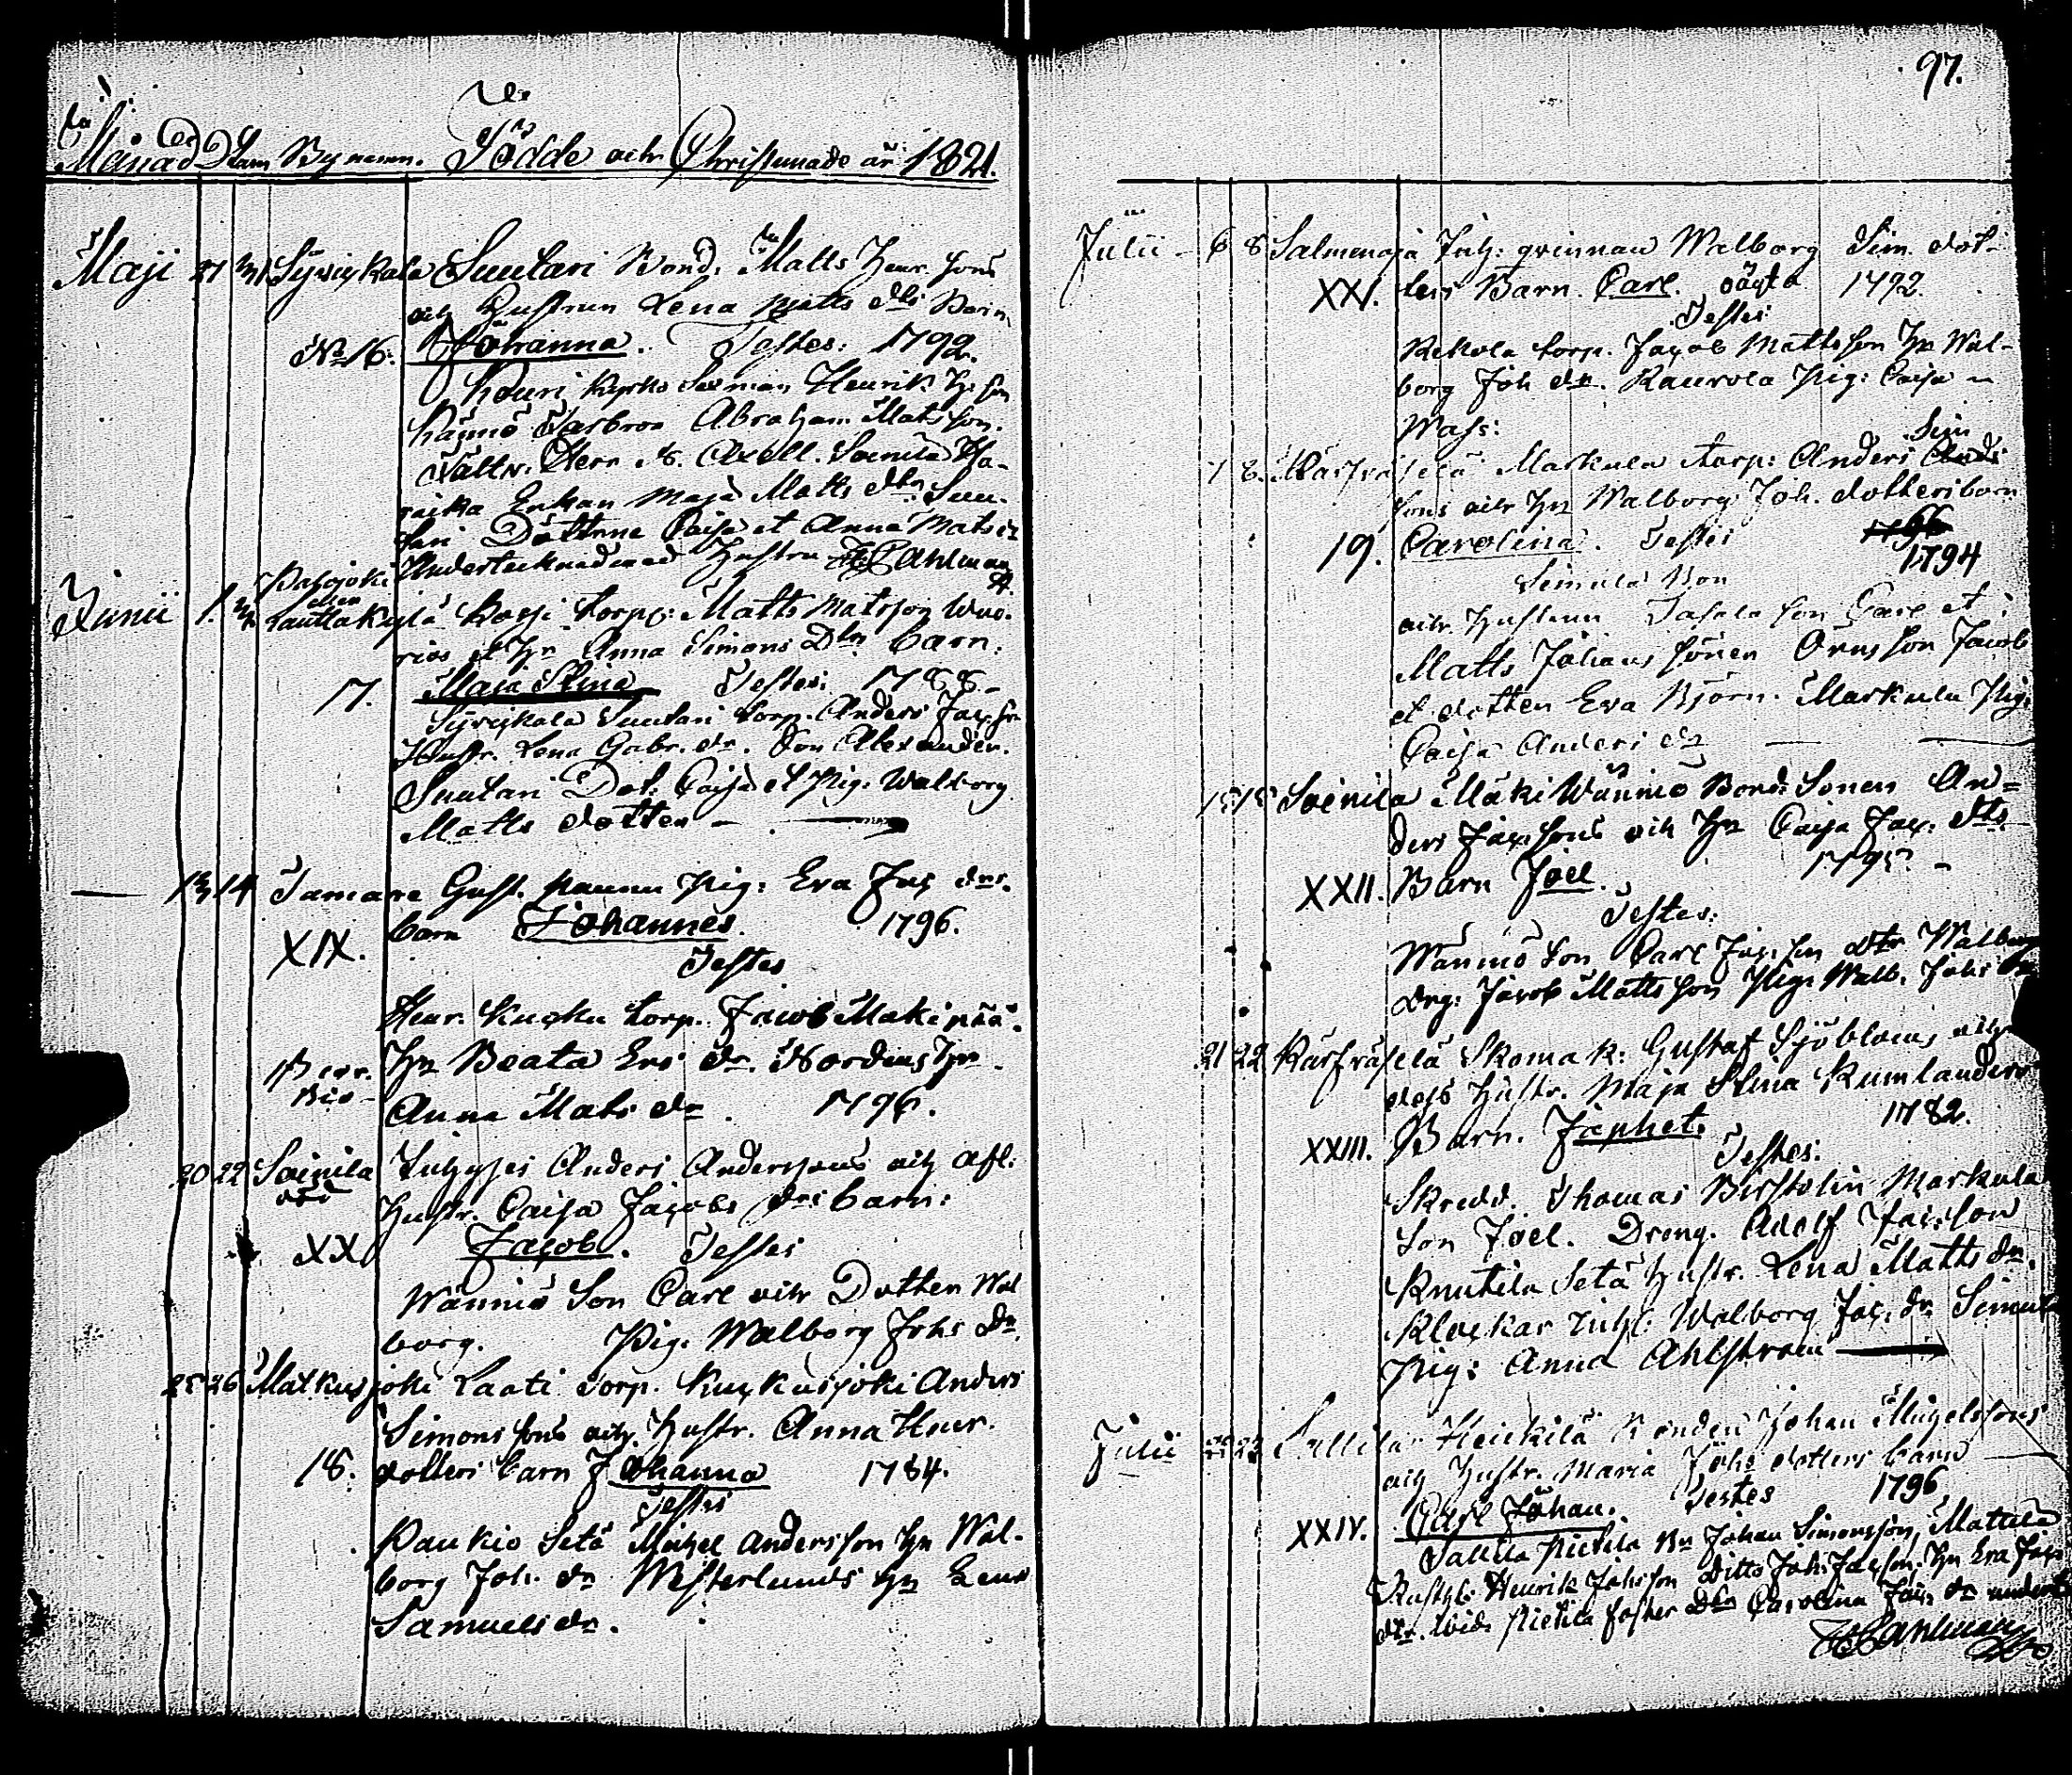 97.
Månad Dtum Bynamn. Födde och Christnade år 1821.
Maji 27 Syrickala Suutari Bond. Matts Henr. sons
och Hustrun Lena Matts dtrs Barn
No 16. Johanna. Testes: 1792.
Kouri Kyrko Henrik
Abraham Matsson.
Herr Axell. Soinila
Enkan Maja Matts dtr. Suu-
tari Döttrne Caisa et Anna Mats
Undertecknad med Hustru Ahlman
Junii 1. Pasojoki
Lauttakylä torp: Matts Matsson
et Hn Anna Simons Dtrs barn.
17. Maja Stina Testes: 1788
Syrickala Suutari torp. Anders Jac. son
Hustr. Lena Gabr. dr. Son Alexander.
Suutari Dot. Caisa et Pig. Walborg
Matts dotter
13 14 Tamare Gust. Pig: Eva Jac drs.
barn Johannes. 1796.
XIX.
Testes
Henr. Kucku torp. Jacob
Hn Beata Ers dr. Nordens Hn
Anna Mats dr. 1796.
20 22 Soinila Inhyses Anders Anderssons och afl.
Hustr. Caisa Jacobs drs barn:
XX Jacob. Testes
Wännis Son Carl och Dotter Wal
borg. Pig. Walborg Johs Dr.
25 26 Matkusjoki Laati torp. Kuckusjoki Anders
Simons sons och Hustr. Anna Henr.
18. dotters barn Johanna 1784.
Testes
Paukio Setä Michel Andersson Hn Wal-
borg Joh. dr Westerlunds Hn Lena
Samuels dr.
Julii 6 8 Salmenoja Inh: qvinnan Walborg Sim. dot-
XXI. ters Barn. Carl. oäkta 1792.
Testes
Rekola torp. Jacob Mattsson Hn Wal-
borg Joh dr. Raurola Pig: Caisa
7 8. Markula torp: Anders Sim
sons och Hn Walborg Joh. dotters barn
19. Carolina. Testes 1794
Simula Bon
och Hustrun son Carl et
Matts Johans söner son Jacob
et dotter Eva Björn. Markula Pig:
Caisa Anders dr
15 15 Soinila Mäki Wännis Bond. Sonen An=
ders Jac. sons och Hn Caisa Jac. dtrs
XXII. Barn Joel. 1795.
Testes:
Wännis son Carl Jac. son dtr Walborg
Drg: Jacob Matts son Pig: Walb. Johs dr
21 22 Karfräselä Skomak: Gustaf Sjöbloms och
dess Hustr. Maja Stina Rumlanders
XXIII. Barn. Japhet. 1782.
Testes:
Skredd. Thomas Markula
Son Joel. Dreng. Adolf Jac. son
Knutila Setä Hustr. Lena Matts dr.
Klockar Inh: Walborg Jac. dr Simula
Pig: Anna Ahlström
Julii 22 Sallila Heickilä Bonden Johan Michelssons
och Hustr. Maria Johs dotters barn
XXIV. Carl Johan. Testes 1796
Sallila Pietila Bn Johan Simonsson, Mattila
Henrik Johsson Ditto Joh. Jacsson. Hn Eva Jacs
dtr. Pietila foster Dtr Carolina Jac. dr
Ahlman